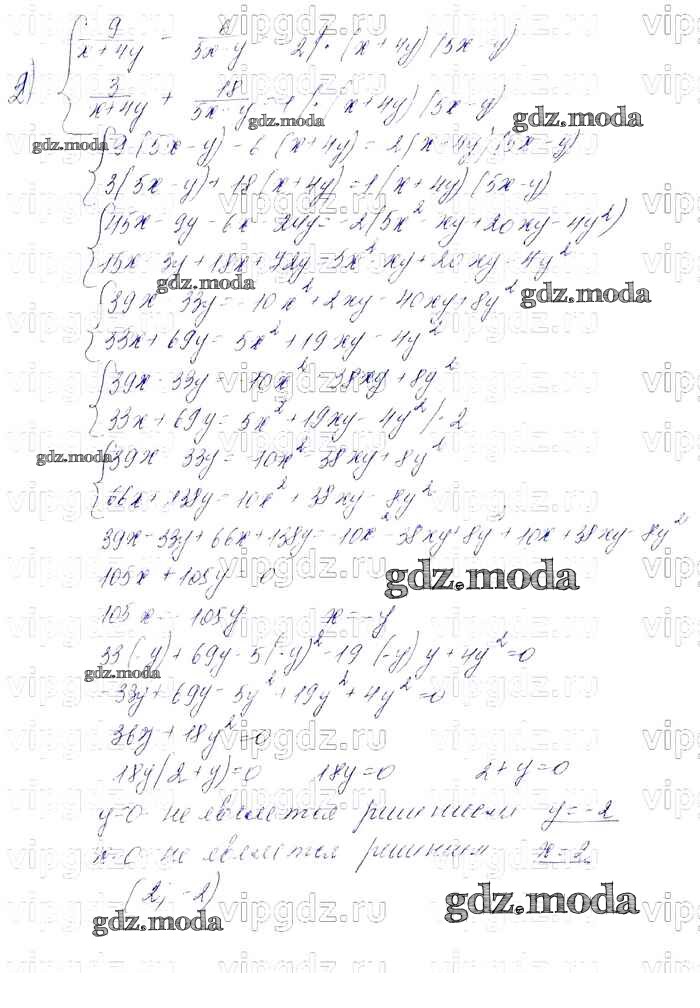 2) { 9/(x+4y) - 6/(5x-y) = -2 | · (x+4y)(5x-y)
3/(x+4y) + 18/(5x-y) = 1 | · (x+4y)(5x-y)
{ 9(5x-y) - 6(x+4y) = -2(x+4y)(5x-y)
3(5x-y) + 18(x+4y) = 1(x+4y)(5x-y)
{ 45x - 9y - 6x - 24y = -2(5x² - xy + 20xy - 4y²)
15x - 3y + 18x + 72y = 5x² - xy + 20xy - 4y²
{ 39x - 33y = -10x² + 2xy - 40xy + 8y²
33x + 69y = 5x² + 19xy - 4y²
{ 39x - 33y = -10x² - 38xy + 8y²
33x + 69y = 5x² + 19xy - 4y² | · 2
{ 39x - 33y = -10x² - 38xy + 8y²
66x + 138y = 10x² + 38xy - 8y²
39x - 33y + 66x + 138y = -10x² - 38xy + 8y² + 10x² + 38xy - 8y²
105x + 105y = 0
105x = -105y x = -y
33(-y) + 69y - 5(-y)² - 19(-y)y + 4y² = 0
-33y + 69y - 5y² + 19y² + 4y² = 0
36y + 18y² = 0
18y(2+y) = 0 18y = 0 2+y = 0
y=0 не является решением y = -2
x=0 не является решением x = 2
(2; -2)
gdz.moda
vipgdz.ru